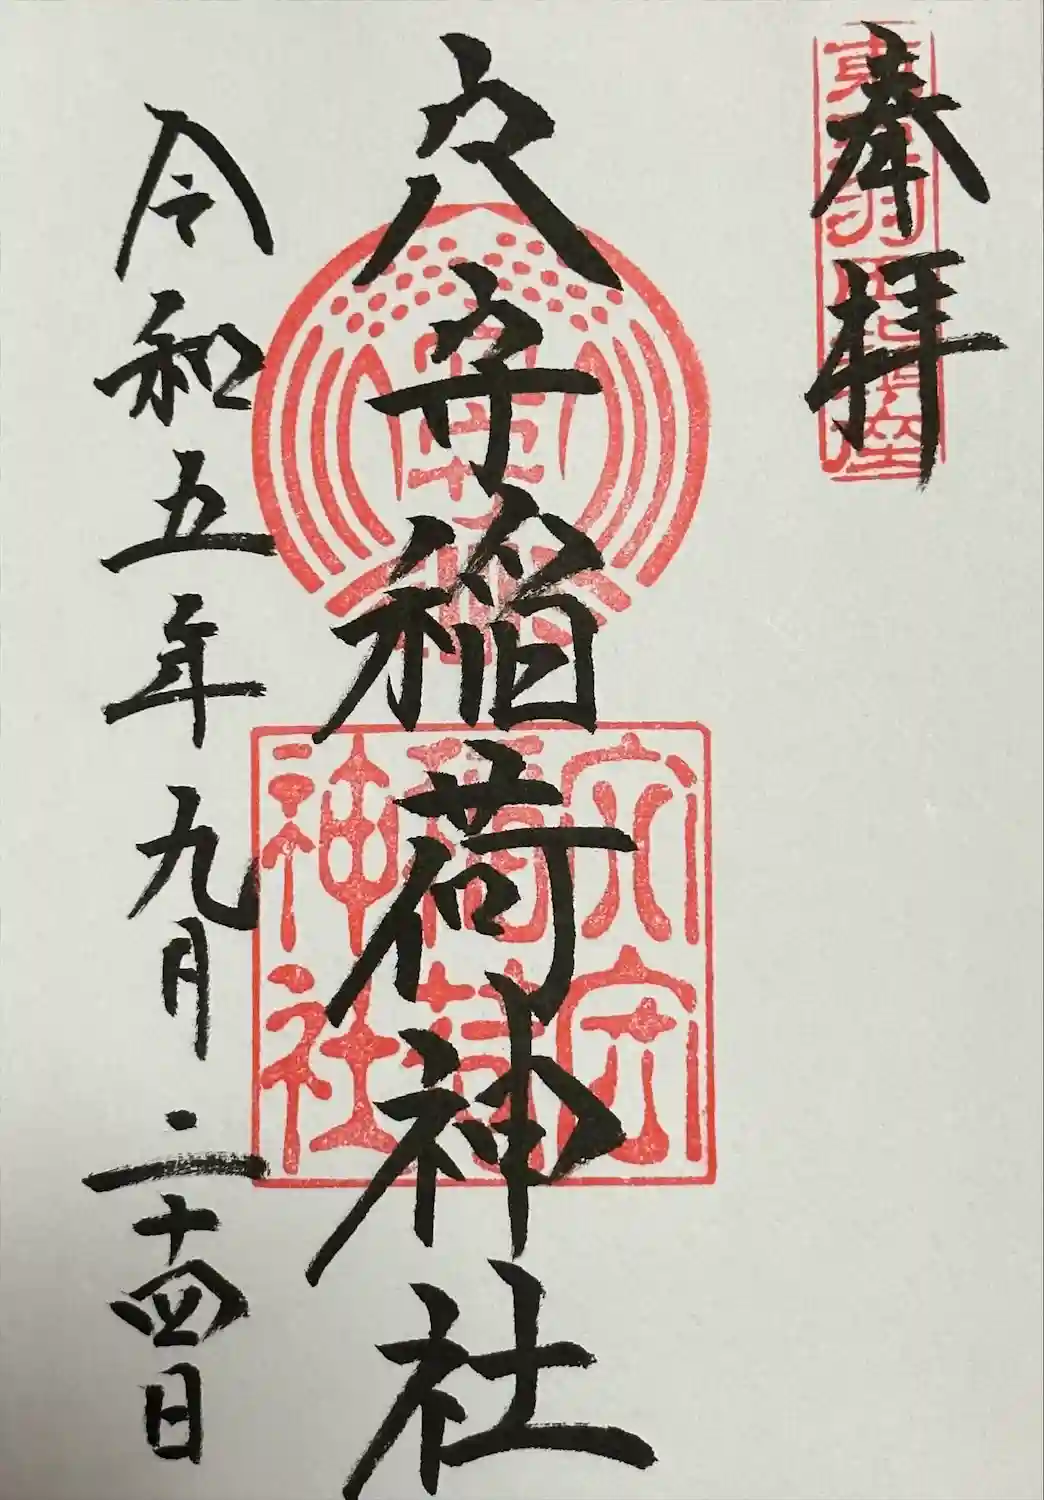 奉拝
東京羽田鎮座
穴守稲荷神社
穴守
稲荷
神社
令和五年九月二十四日